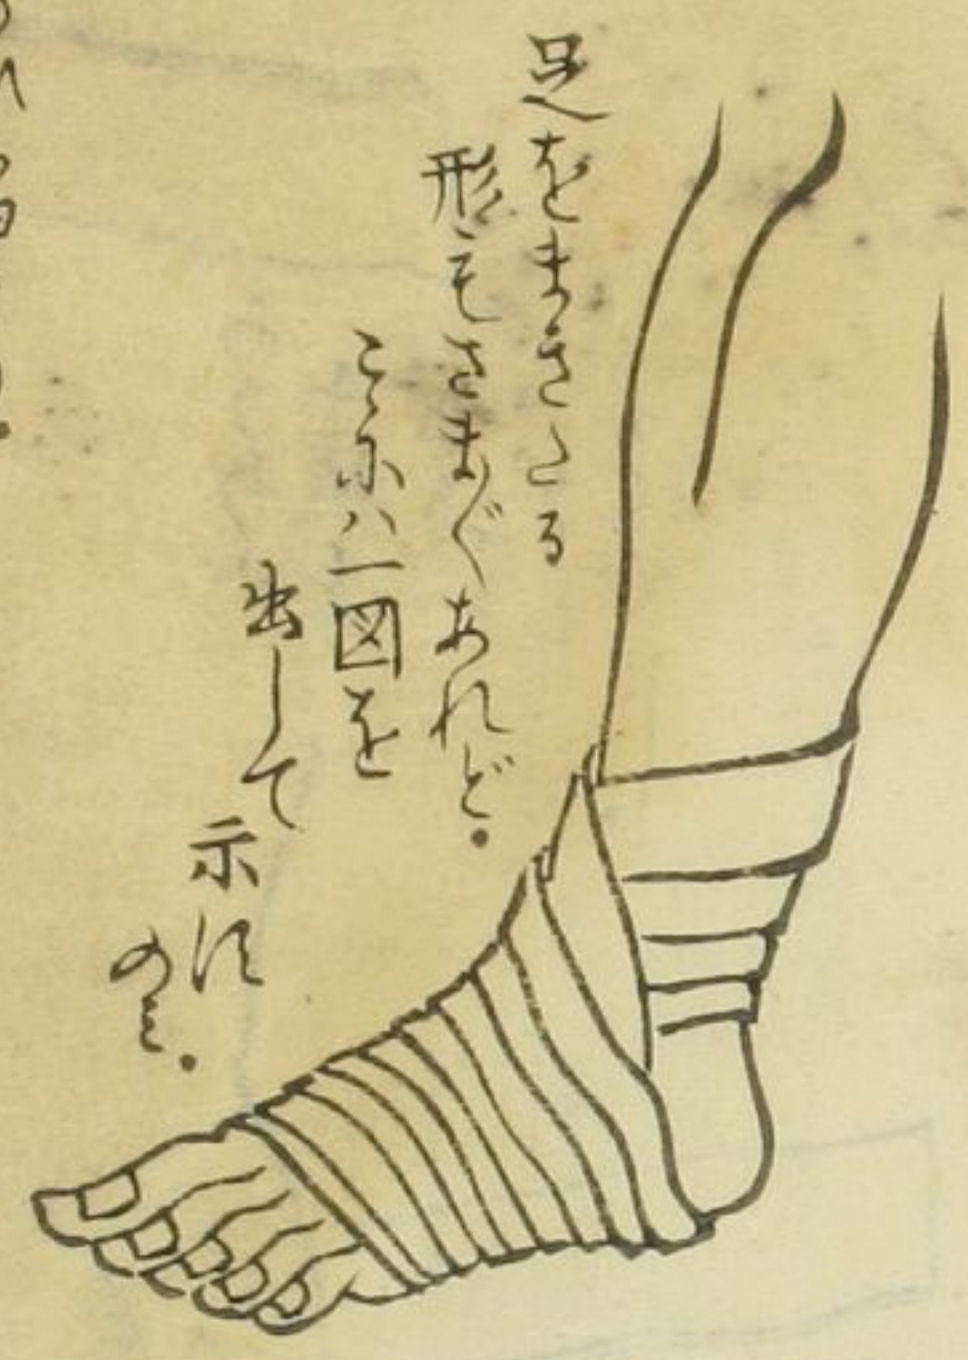 足をまきたる
形もさま〲あれど。
こゝにハ一図を
出して
示す
のミ。